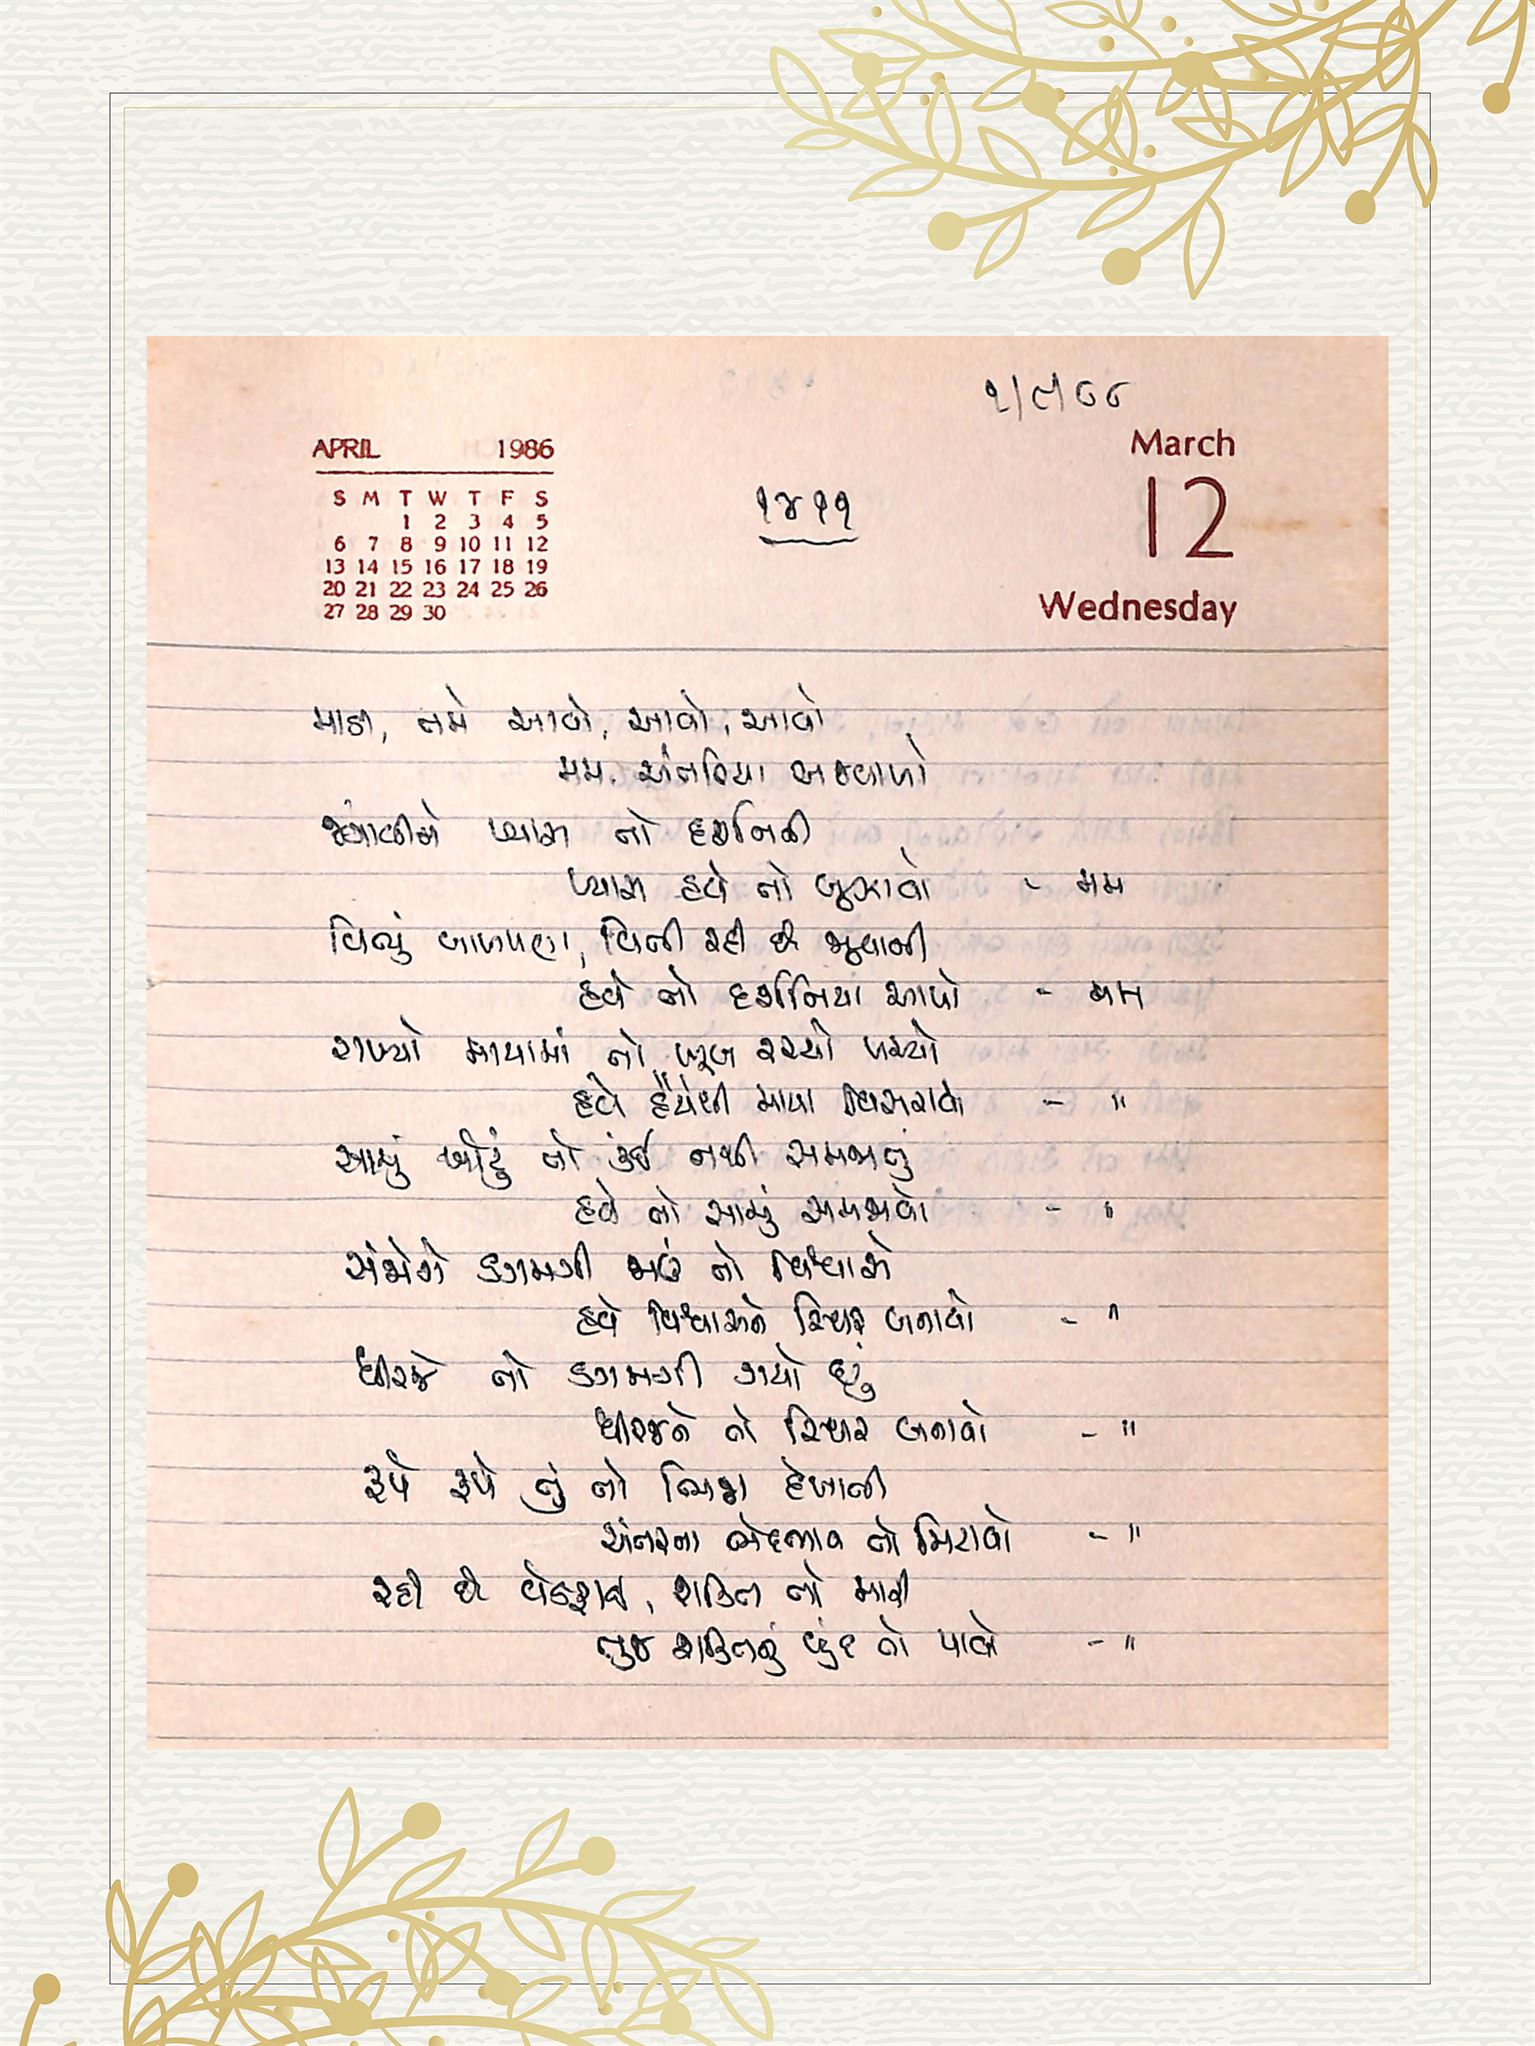 ૨/૯/૮૮
APRIL 1986
S M T W T F S
1 2 3 4 5
6 7 8 9 10 11 12
13 14 15 16 17 18 19
20 21 22 23 24 25 26
27 28 29 30
૧૪૧૧
March
12
Wednesday
માડી, તમે આવો, આવો, આવો
મમ અંતરિયા અજવાળો
જગાવીને પ્યાસ તો દર્શનની
પ્યાસ હવે તો બુઝાવો - મમ
વિત્યું બાળપણ, વિતી રહી છે જુવાની
હવે તો દર્શનિયા આપો - મમ
રાખ્યો માયામાં તો ખૂબ રચ્યો પચ્યો
હવે હૈયેથી માયા વિસરાવો - "
સાચું ખોટું તો કંઈ નથી સમજાતું
હવે તો સાચું સમજાવો - "
સંજોગે ડગમગી જાઉં તો વિશ્વાસે
હવે વિશ્વાસને સ્થિર બનાવો - "
ધીરજે તો ડગમગી ગયો છું
ધીરજને તો સ્થિર બનાવો - "
રૂપે રૂપે તું તો ભિન્ન દેખાતી
અંતરના ભેદભાવ તો મિટાવો - "
રહી છે વેડફાઈ, શક્તિ તો મારી
તુજ શક્તિનું બુંદ તો પાવો - "